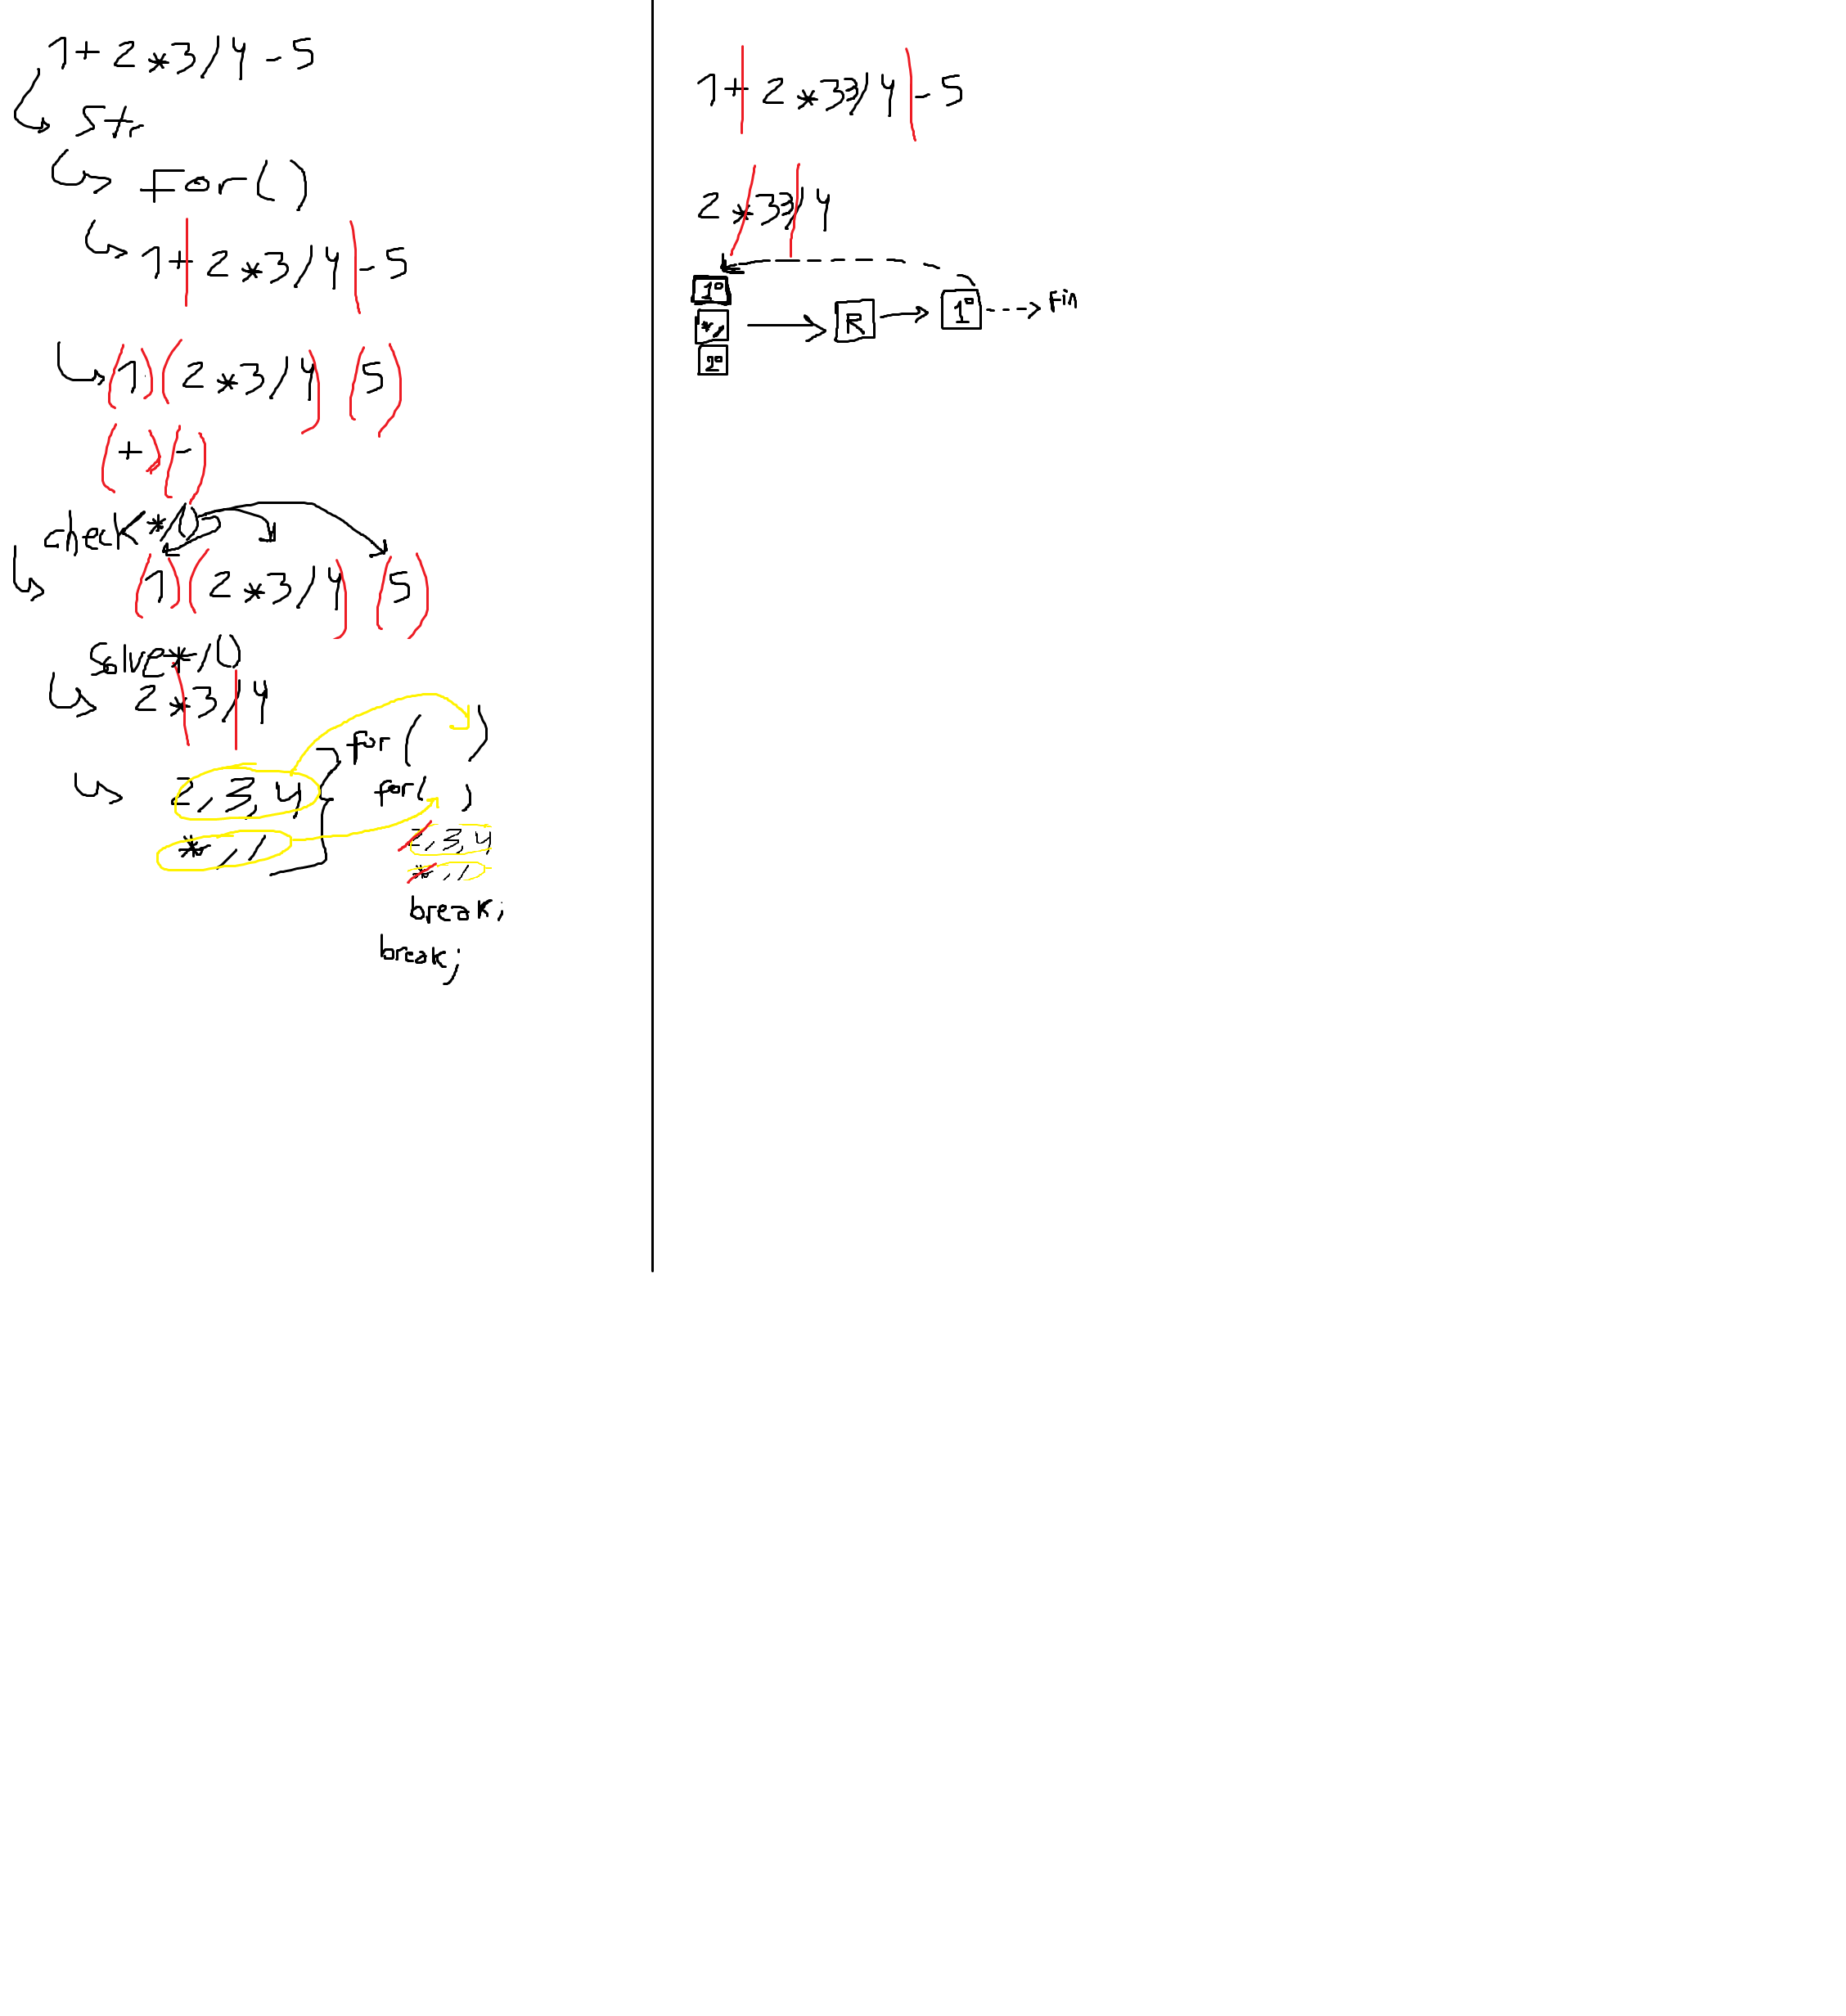 1+2*3/4-5
Str
for()
1+2*3/4-5
(1)(2*3/4)(5)
(+)(-)
check*/()
(1)(2*3/4)(5)
solve*/()
2*3/4
2,3,4
*,/
for( )
for( )
2,3,4
*,/
break;
break;
1+2*33/4-5
2*33/4
1º
*/
2º
R
1º
Fin